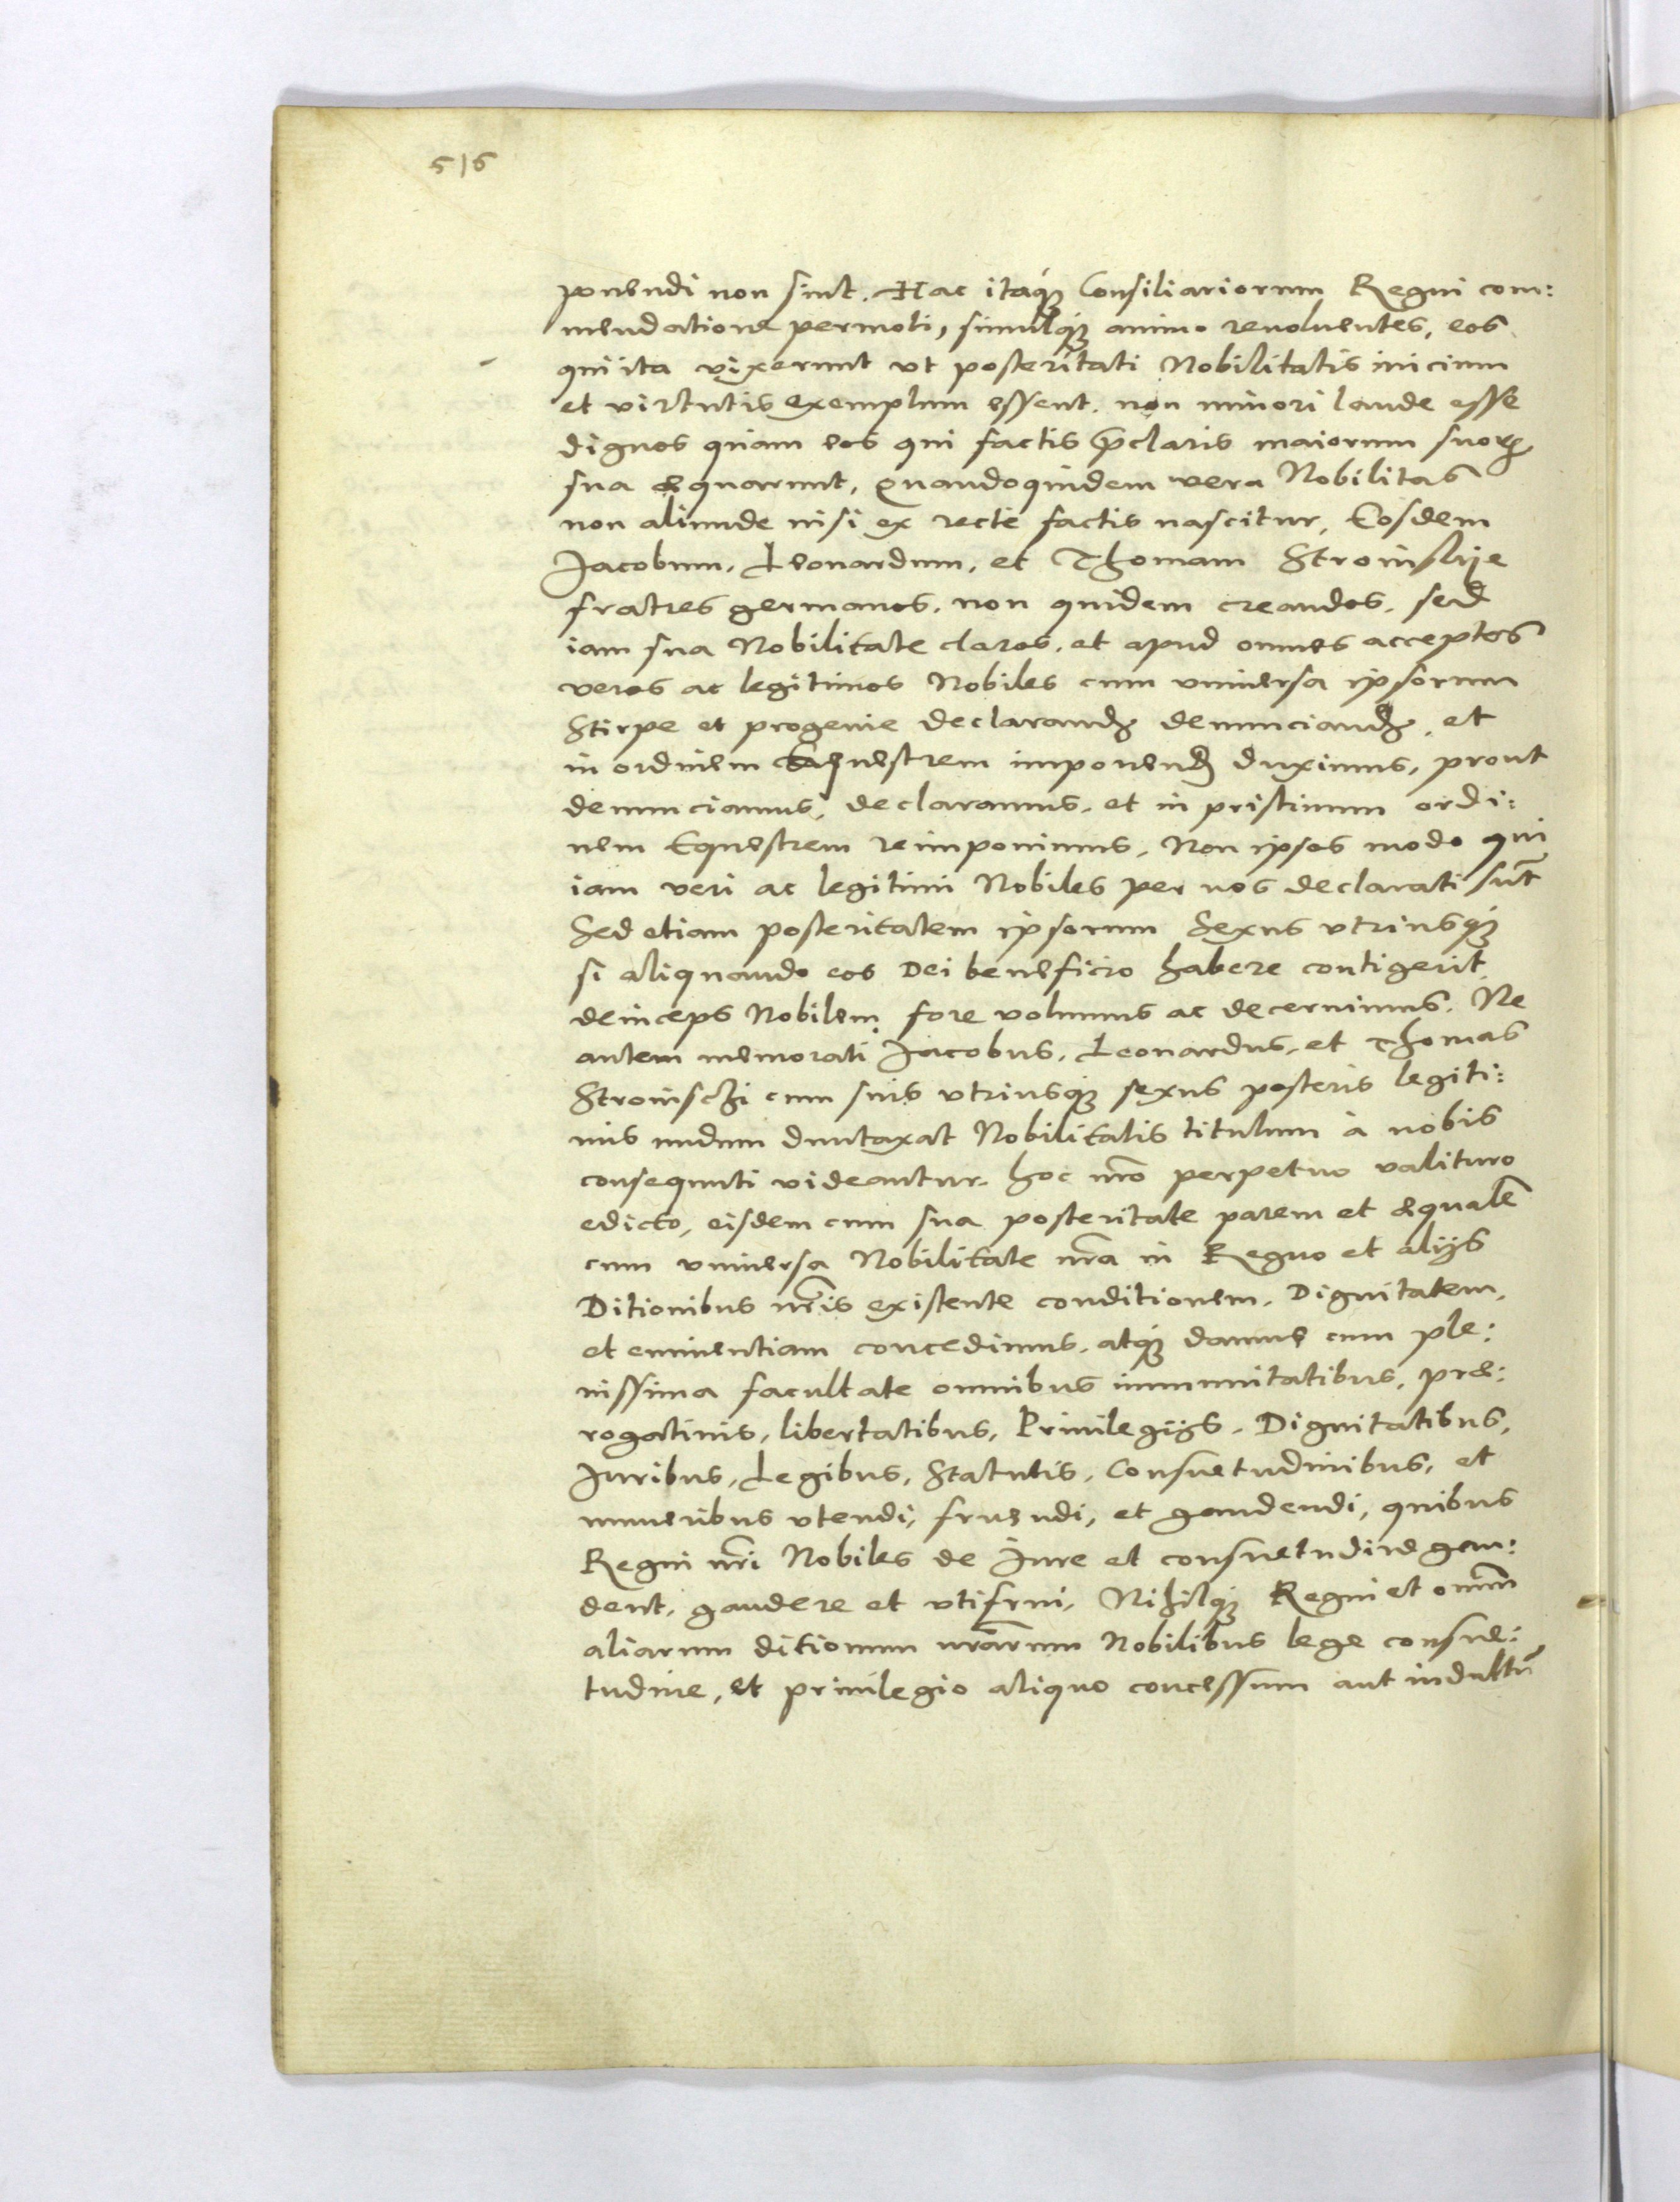 516
ponendi non sint. Hac itaq́ꝫ Consiliariorum Regni com:
mendatione permoti, simulq́ꝫ animo reuoluentes, eos
qui ita vixerunt vt posteritati Nobilitatis inicium
et virtutis exemplum essent. non minori laude esse
dignos quam eos qui factis p̃claris maiorum suoꝝ
sua æquarunt, Quandoquidem vera Nobilitas
non aliunde nisi ex recte factis nascitur, Eosdem
Jacobum, Leonardum, et Thomam Stroinskije
fratres germanos. non quidem creandos. sed
iam sua Nobilitate claros. et apud omnes acceptos
veros ac legitimos Nobiles cum vniuersa ipsorum
Stirpe et progenie declarandꝫ denunciandꝫ, et
in ordinem Equestrem imponendꝫ duximus, prout
denunciamus, declaramus. et in pristinum ordi:
nem Equestrem reimponimus. Non ipsos modo qui
iam veri ac legitimi Nobiles per nos declarati sũt
Sed etiam posteritatem ipsorum Sexus vtriusq́ꝫ
si aliquando eos Dei beneficio habere contigerit,
deinceps Nobilem fore volumus ac decernimus. Ne
autem memorati Jacobus, Leonardus, et Thomas
Stroinschi cum suis vtriusq́ꝫ sexus posteris legiti:
mis nudum duntaxat Nobilitatis titulum à nobis
consequuti videantur. hoc nr̃o perpetuo valituro
edicto, eisdem cum sua posteritate parem et æqualẽ
cum vniuersa Nobilitate nr̃a in Regno et alijs
Ditionibus nr̃is existente conditionem. Dignitatem,
et eminentiam concedimus. atq́ꝫ damus cum ple:
nissima facultate omnibus immunitatibus, præ:
rogatiuis, libertatibus, Priuilegijs. Dignitatibus,
Juribus, Legibus, Statutis, Consuetudinibus, et
muneribus vtendi, fruendi, et gaudendi, quibus
Regni nr̃i Nobiles de Jure et consuetudine gau:
dent, gaudere et vti frui, Nihilq́ꝫ Regni et omñm
aliarum ditionum nr̃arum Nobilibus lege consue:
tudine, et priuilegio aliquo concessum aut indultũ